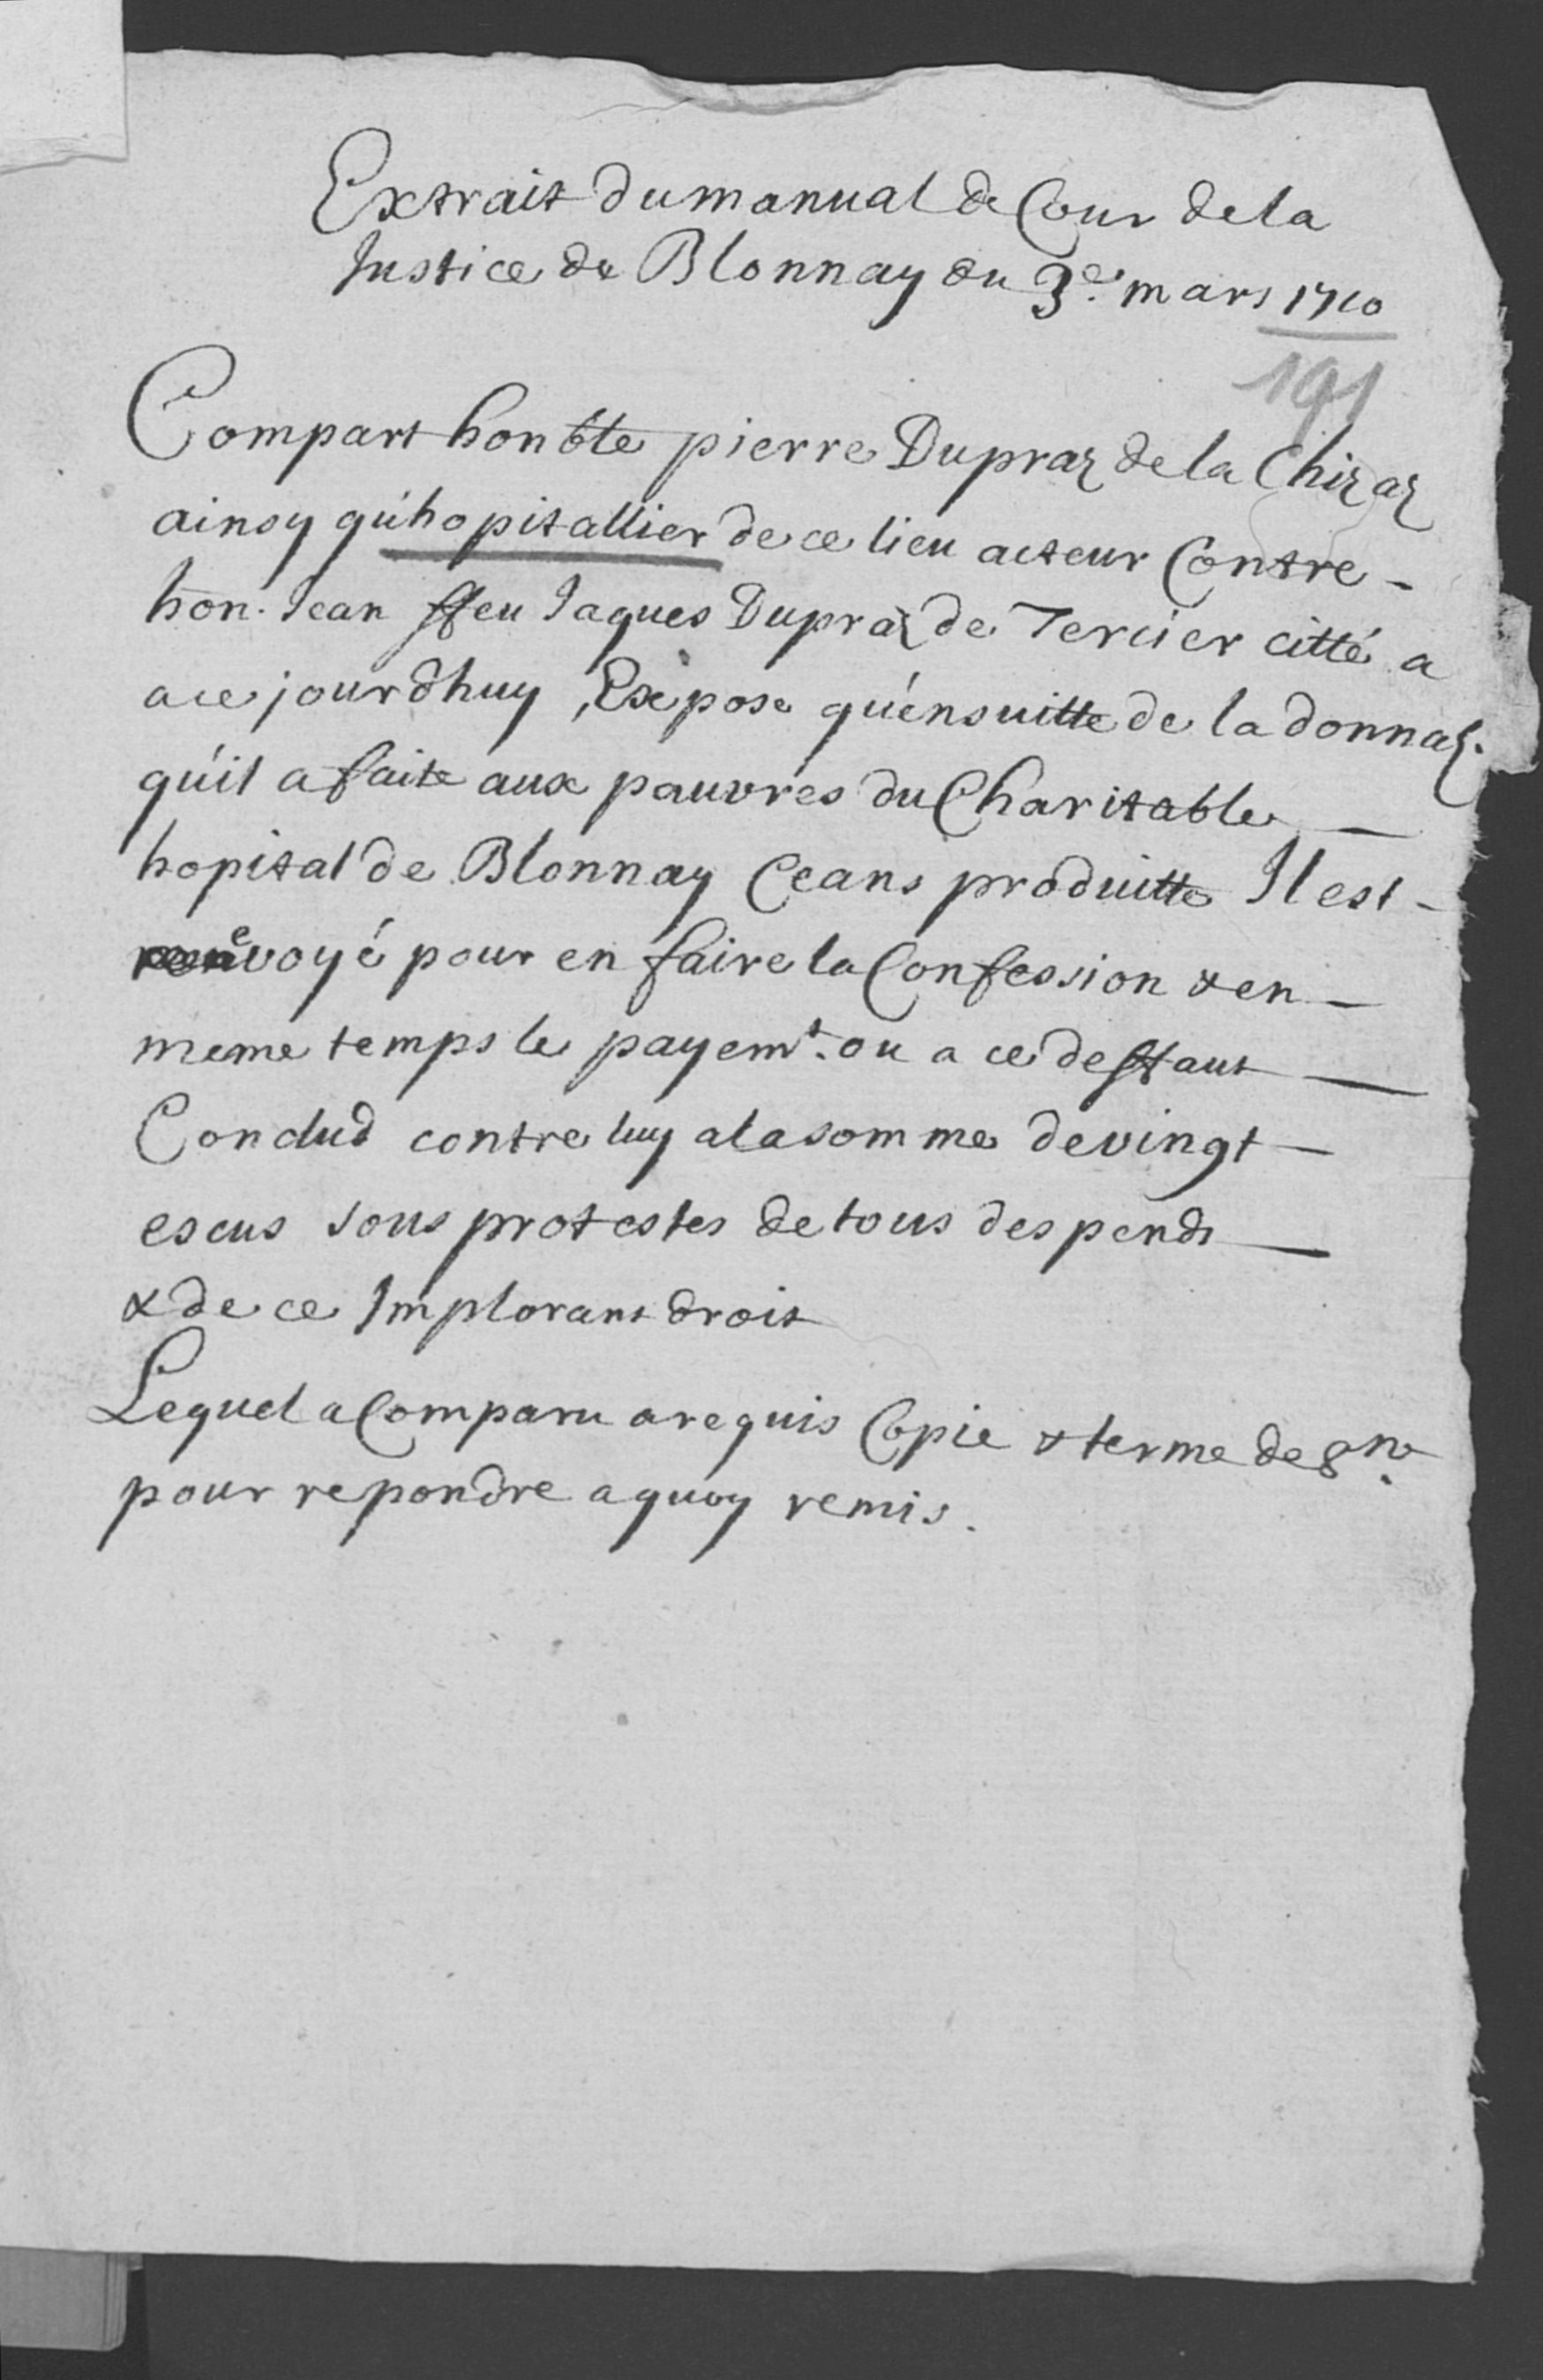 Extrait du manual de Cour de la
Justice de Blonnay du 3e. mars 1710
191
Compart honble pierre Dupraz de la Chizaz
ainsy qu'hopitallier de ce lieu acteur Contre -
hon. Jean ffeu Jaques Dupraz de Tercier citté a
a ce jourdhuy, Expose qu'ensuitte de la donnaõn.
qu'il a faite aux pauvres du Charitable -
hopital de Blonnay Ceans produitte Il est -
envoyé pour en faire la Confession & en -
meme temps le payemt. ou a ce deffaut -
Conclud contre luy a la somme de vingt -
escus sous protestes de tous despends -
& de ce Implorant droit
Lequel a Comparu a requis Copie & terme de 8ne.
pour repondre a quoy remis.